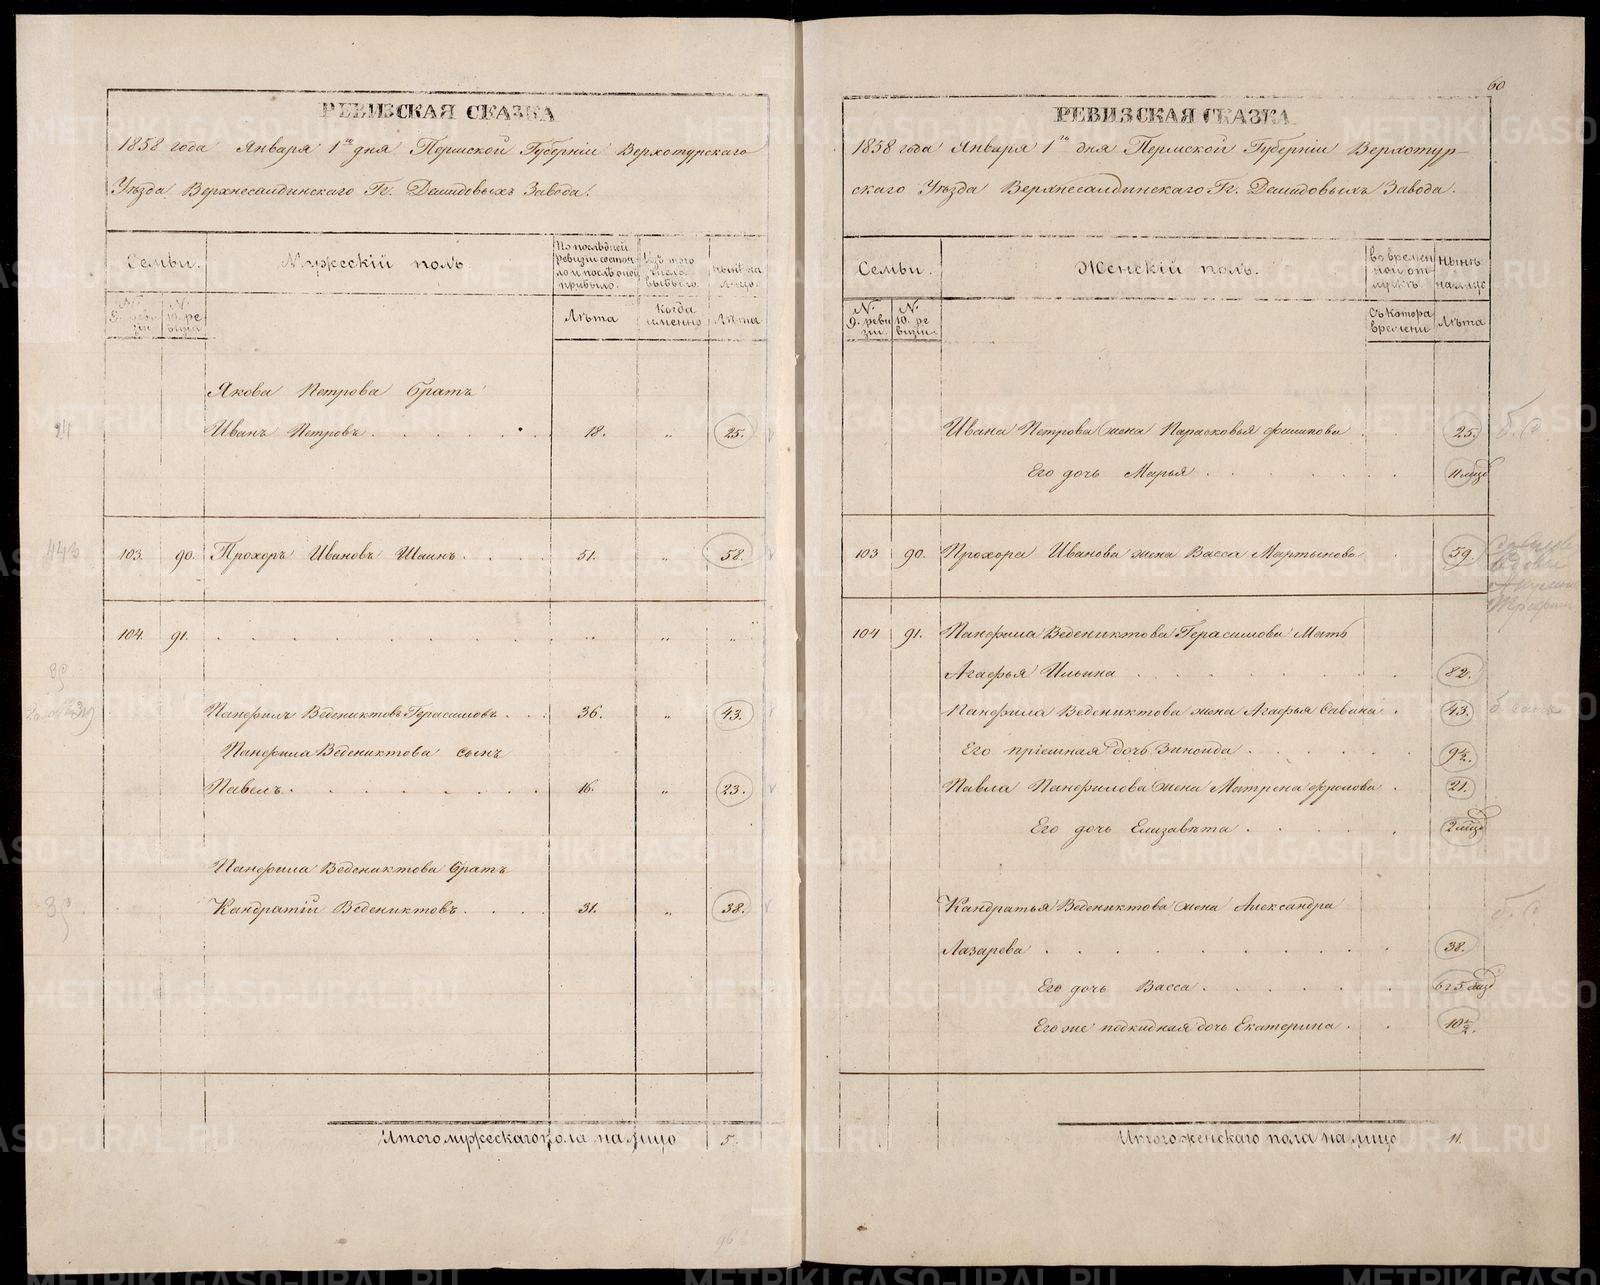 РЕВИЗСКАЯ СКАЗКА
1858 года Января 1го дня Пермской Губерніи Верхотурскаго
Уѣзда Верхнесалдинскаго Гг. Демидовыхъ Завода.
Семьи.
Мужескій полъ.
По послѣдней ревизіи состояло и послѣ оной прибыло.
Изъ того числа выбыло.
Нынѣ на лицо.
№ 9. ревизіи
№ 10. ревизіи
Лѣта
Когда именно
Лѣта
Якова Петрова братъ
24 Иванъ Петровъ 18. „ 25.
103. 90. Прохоръ Ивановъ Шаинъ 51. „ 58.
104. 91. „ „ „
Панфилъ Веденихтовъ Герасимовъ 36. „ 43.
Панфила Веденихтова сынъ
Павелъ 16. „ 23.
Панфила Веденихтова братъ
Кандратій Веденихтовъ 31. „ 38.
Итого мужескаго пола на лицо 5.
60
РЕВИЗСКАЯ СКАЗКА
1858 года Января 1го дня Пермской Губерніи Верхотур-
скаго Уѣзда Верхнесалдинскаго Гг. Демидовыхъ Завода.
Семьи.
Женскій полъ.
Во временной отлучкѣ
Нынѣ на лицо
№ 9. ревизіи
№ 10. ревизіи
Съ котора времени
Лѣта
Ивана Петрова жена Парасковья Филипова 25.
Его дочь Марья
103 90. Прохора Иванова жена Васса Мартынова 59.
104 91. Панфила Веденихтова Герасимова Мать
Агафья Ильина 82.
Панфила Веденихтова жена Агафья Савина 43.
Его пріемная дочь Зиноида 9½.
Павла Панфилова жена Матрена Фролова 21.
Его дочь Елизавѣта
Кандратья Веденихтова жена Александра
Лазарева 38.
Его дочь Васса
Его же подкидная дочь Екатерина 10½.
Итого женскаго пола на лицо 11.
METRIKI.GASO-URAL.RU